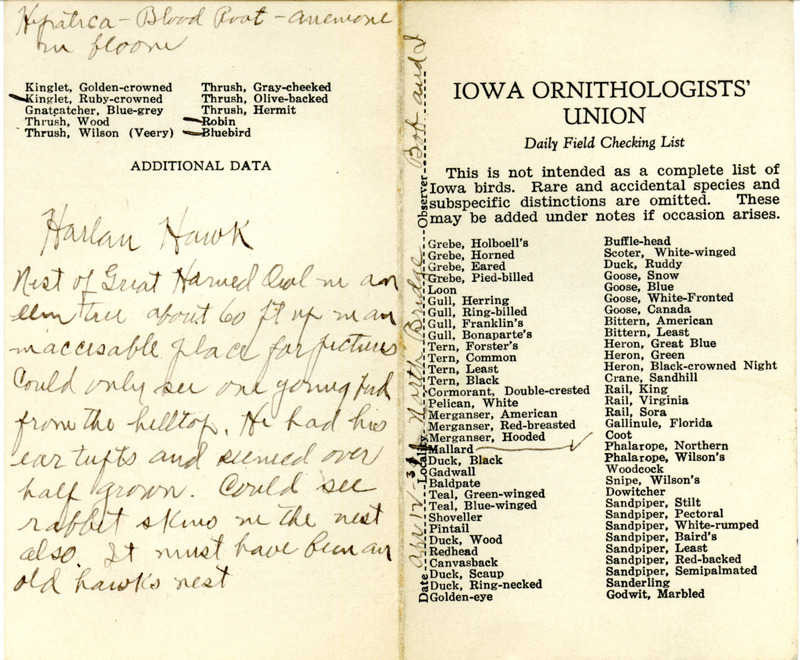 Hepatica – Blood Root – anemone
in bloom
Kinglet, Golden-crowned
Kinglet, Ruby-crowned
Gnatcatcher, Blue-grey
Thrush, Wood
Thrush, Wilson (Veery)
Thrush, Gray-cheeked
Thrush, Olive-backed
Thrush, Hermit
Robin
Bluebird
ADDITIONAL DATA
Harlan Hawk
Nest of Great Horned Owl in an
elm tree about 60 ft up in an
inaccesable place for pictures
Could only see one young bird
from the hilltop. He had his
ear tufts and seemed over
half grown. Could see
rabbit skins in the nest
also. It must have been an
old hawks nest
Date Apr 12 Locality North Bridge Observer Bob and I
IOWA ORNITHOLOGISTS'
UNION
Daily Field Checking List
This is not intended as a complete list of
Iowa birds. Rare and accidental species and
subspecific distinctions are omitted. These
may be added under notes if occasion arises.
Grebe, Holboell's
Grebe, Horned
Grebe, Eared
Grebe, Pied-billed
Loon
Gull, Herring
Gull, Ring-billed
Gull, Franklin's
Gull, Bonaparte's
Tern, Forster's
Tern, Common
Tern, Least
Tern, Black
Cormorant, Double-crested
Pelican, White
Merganser, American
Merganser, Red-breasted
Merganser, Hooded
Mallard
Duck, Black
Gadwall
Baldpate
Teal, Green-winged
Teal, Blue-winged
Shoveller
Pintail
Duck, Wood
Redhead
Canvasback
Duck, Scaup
Duck, Ring-necked
Golden-eye
Buffle-head
Scoter, White-winged
Duck, Ruddy
Goose, Snow
Goose, Blue
Goose, White-Fronted
Goose, Canada
Bittern, American
Bittern, Least
Heron, Great Blue
Heron, Green
Heron, Black-crowned Night
Crane, Sandhill
Rail, King
Rail, Virginia
Rail, Sora
Gallinule, Florida
Coot
Phalarope, Northern
Phalarope, Wilson's
Woodcock
Snipe, Wilson's
Dowitcher
Sandpiper, Stilt
Sandpiper, Pectoral
Sandpiper, White-rumped
Sandpiper, Baird's
Sandpiper, Least
Sandpiper, Red-backed
Sandpiper, Semipalmated
Sanderling
Godwit, Marbled